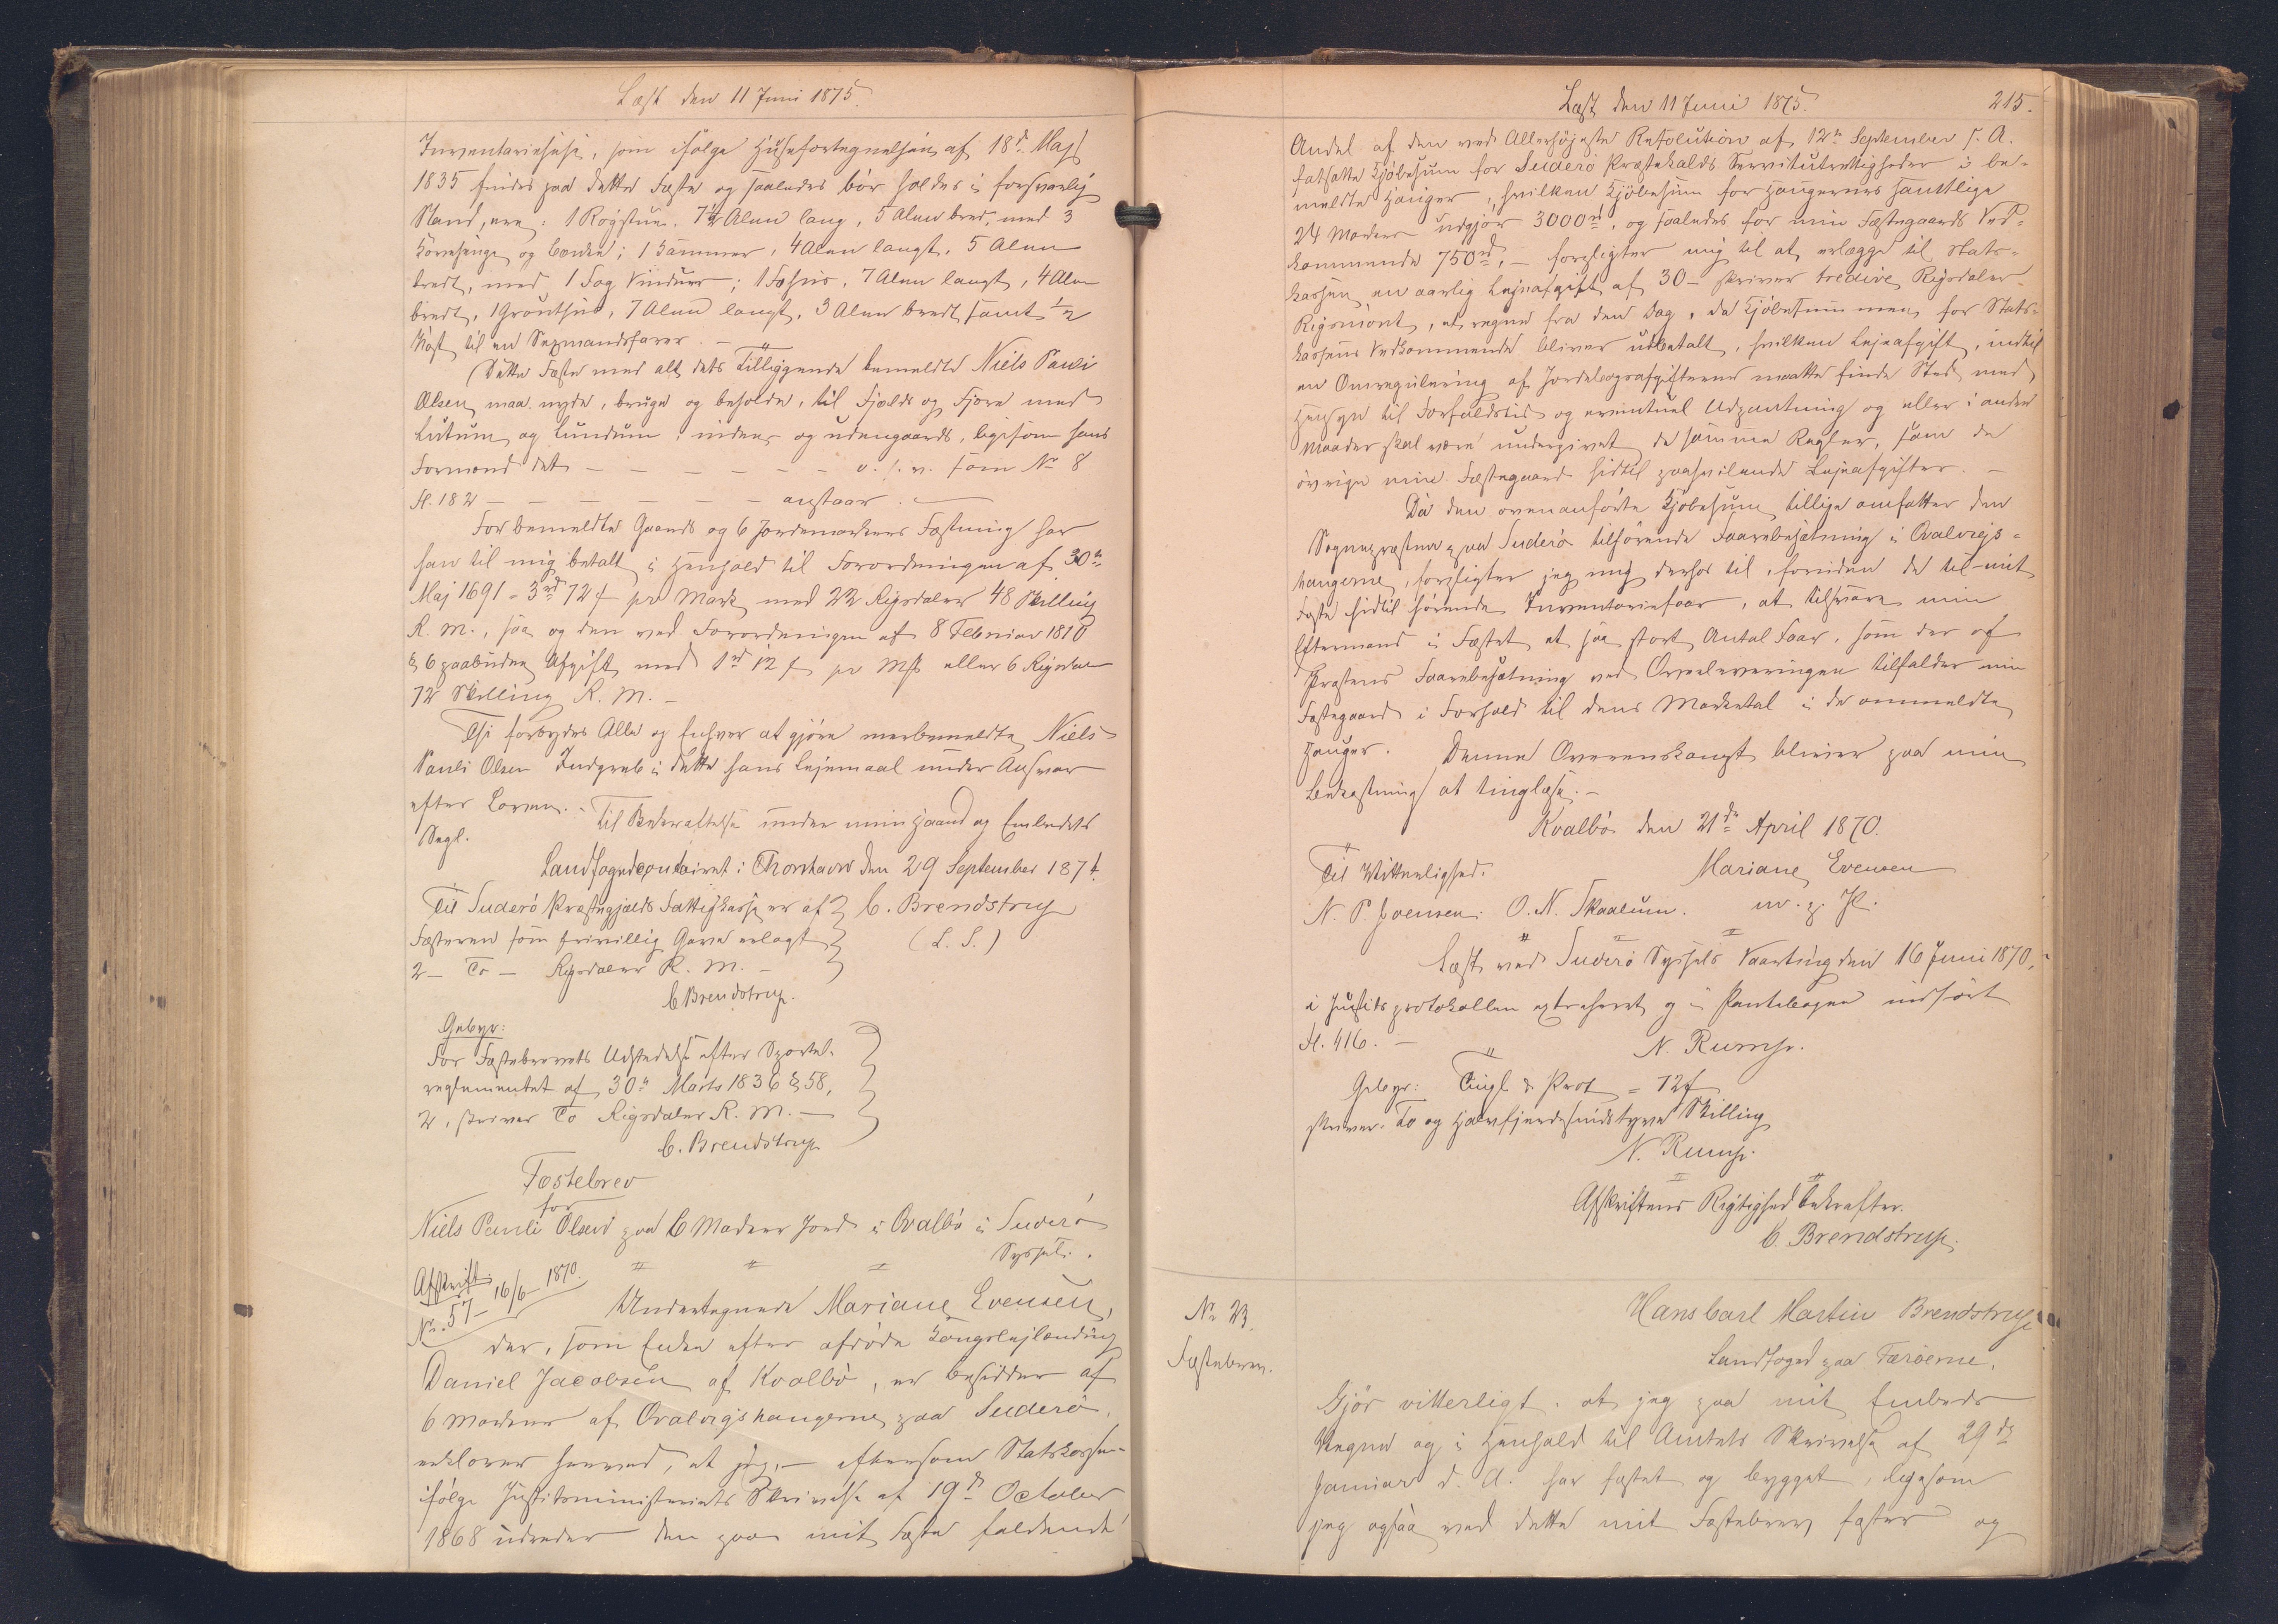 Læst den 11 Juni 1875.
Inventariehuse, som ifölge Husefortegnelsen af 18d Maj
1835 findes paa dette Fæste og saaledes bör holdes i forsvarlig
Stand, ere: 1 Rögstue, 7½ Alen lang, 5 Alen bred, med 3
og Bænke; 1 Kammer, 4 Alen langt, 5 Alen
bredt, med 1 Fag Vinduer; 1 Fæhus, 7 Alen langt, 4 Alen
bredt, 1 Gröuthus, 7 Alen langt, 3 Alen bredt samt ½
til en Sexmandsfarer. –
Dette Fæste med alt dets Tilliggende bemeldte Niels Pauli
Olsen maa nyde, bruge og beholde, til Fjælds og Fjære med
Lutum og Lundum, inden- og udengaards, ligesom hans
Formand det – – – – – – – o. s. v. som No 8
fl. 182 – – – – – – – anstaar.
For bemeldte Gaards og 6 Jordemarkers Fæstning har
han til mig betalt i Henhold til Forordningen af 30te
Maj 1691 = 3rd 72 f pr Mark med 22 Rigsdaler 48 Skilling
R. M., saa og den ved Forordningen af 8 Februar 1810
§ 6 paabudne Afgift med 1rd 12 f pr Mk eller 6 Rigsdaler
72 Skilling R. M. –
Thi forbydes Alle og Enhver at gjöre merbemeldte Niels
Pauli Olsen Indgreb i dette hans Lejemaal under Ansvar
efter Loven. – Til Bekræftelse under min Haand og Embedets
Segl.
Landfogedcontoiret i Thorshavn den 29 September 1874.
Til Suderö Præstegjælds Fattigkasse er af C. Brendstrup
Fæsteren som frivillig Gave erlagt (L. S.)
2 – To – Rigsdaler R. M. –
C Brendstrup.
Gebyr:
For Fæstebrevets Udstedelse efter Sportel-
reglementet af 30te Marts 1836 § 58,
2, skriver To Rigsdaler R. M. –
C. Brendstrup
Fæstebrev
for
Niels Pauli Olsen paa 6 Marker Jord i Qvalbö i Suderö
Syssel.
Afskrift.
No. 57 – 16/6 – 1870.
Undertegnede Mariane Evensen,
der, som Enke efter afdöde Kongslejlænding
Daniel Jacobsen af Kvalbö, er Besidder af
6 Marker af Qvalvigshaugerne paa Suderö,
erklærer herved, at jeg, – eftersom Statskassen
ifölge Justitsministeriets Skrivelse af 19d October
1868 udreder den paa mit Fæste faldende
Læst den 11 Juni 1875.
215.
Andel af den ved Allerhöjeste Resolution af 12te September s. A.
fastsatte Kjöbesum for Suderö Præstekalds Servitutrettigheder i be-
meldte Hauger, hvilken Kjöbesum for Haugernes samtlige
24 Marker udgjör 3000rd, og saaledes for min Fæstegaards Ved-
kommende 750rd, – forpligter mig til at erlægge til Stats-
kassen en aarlig Lejeafgift af 30 – skriver tredive Rigsdaler
Rigsmönt, at regne fra den Dag, da Kjöbesummen for Stats-
kassens Vedkommende bliver udbetalt, hvilken Lejeafgift, indtil
en Omregulering af Jordebogsafgifterne maatte finde Sted, med
Hensyn til Forfaldstid og eventuel Udpantning og eller i andre
Maader skal være undergivet de samme Regler, som de
övrige min Fæstegaard hidtil paahvilende Lejeafgifter. –
Da den ovenanförte Kjöbesum tillige omfatter den
Sognepræsten paa Suderö tilhörende Faarebesætning i Qvalvigs-
haugerne, forpligter jeg mig derhos til, foruden de til mit
Fæste hidtil hörende Inventariefaar, at tilsvare min
Eftermand i Fæstet et saa stort Antal Faar, som der af
Præstens Faarebesætning ved Overleveringen tilfalder min
Fæstegaard i Forhold til dens Marketal i de ommeldte
Hauger. Denne Overenskomst bliver paa min
Bekostning at tinglæse. –
Kvalbö den 21de April 1870.
Til Vitterlighed: Mariane Evensen
N. P. Joensen. O. N. Skaalum. m. p. P.
Læst ved Suderö Syssels Vaarting den 16 Juni 1870,
i Justitsprotokollen extraheret og i Pantebogen indfört
fl. 416. –
N. Rump.
Gebyr: Tingl & Prot = 72 f
skriver To og Halvfjerdsindstyve Skilling
N. Rump.
Afskriftens Rigtighed bekræfter.
C. Brendstrup.
No 23.
Fæstebrev.
Hans Carl Martin Brendstrup
Landfoged paa Færöerne,
Gjör vitterligt: at jeg paa mit Embeds
Vegne og i Henhold til Amtets Skrivelse af 29de
Januar d. A. har fæstet og bygget, ligesom
jeg ogsaa ved dette mit Fæstebrev fæster og